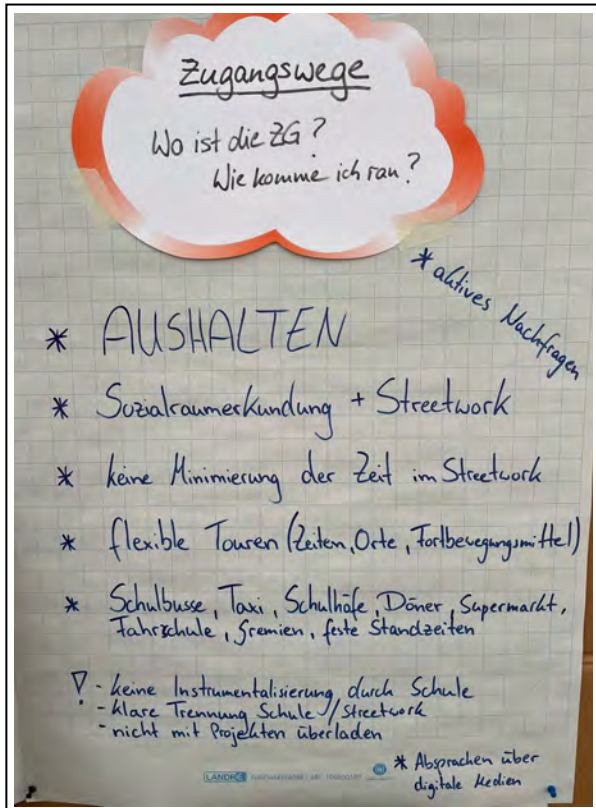 Zugangswege
Wo ist die ZG?
Wie komme ich ran?
* aktives Nachfragen
* AUSHALTEN
* Sozialraumerkundung + Streetwork
* keine Minimierung der Zeit im Streetwork
* flexible Touren (Zeiten, Orte, Fortbewegungsmittel)
* Schulbusse, Taxi, Schulhöfe, Döner, Supermarkt,
Fahrschule, Gremien, feste Standzeiten
! - keine Instrumentalisierung durch Schule
- klare Trennung Schule / Streetwork
- nicht mit Projekten überladen
* Absprachen über
digitale Medien
LANDRÉ